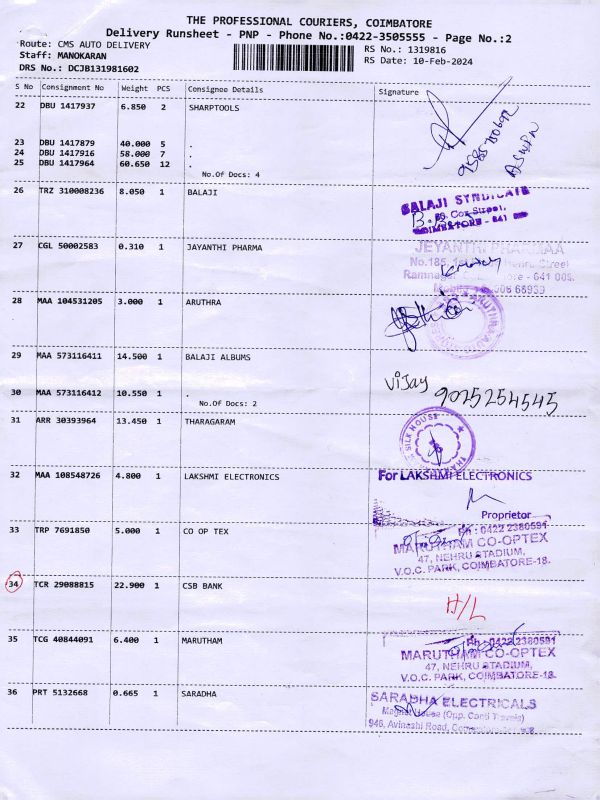 THE PROFESSIONAL COURIERS, COIMBATORE
Delivery Runsheet - PNP - Phone No.:0422-3505555 - Page No.:2
Route: CMS AUTO DELIVERY
RS No.: 1319816
Staff: MANOKARAN
RS Date: 10-Feb-2024
DRS No.: DCJB131981602
S No Consignment No Weight PCS Consignee Details Signature
22 DBU 1417937 6.850 2 SHARPTOOLS
23 DBU 1417879 40.000 5 .
24 DBU 1417916 58.000 7 .
25 DBU 1417964 60.650 12 .
No.Of Docs: 4
26 TRZ 310008236 8.050 1 BALAJI
BALAJI SYNDICATE
27 CGL 50002583 0.310 1 JAYANTHI PHARMA
JEYANTHI PHARMAA
28 MAA 104531205 3.000 1 ARUTHRA
29 MAA 573116411 14.500 1 BALAJI ALBUMS
30 MAA 573116412 10.550 1 .
No.Of Docs: 2
Vijay 9025254545
31 ARR 30393964 13.450 1 THARAGARAM
SILK HOUSE
32 MAA 108548726 4.800 1 LAKSHMI ELECTRONICS
For LAKSHMI ELECTRONICS
Proprietor
33 TRP 7691850 5.000 1 CO OP TEX
Ph : 0422 2380591
MARUTHAM CO-OPTEX
47, NEHRU STADIUM,
V.O.C. PARK, COIMBATORE-18.
34 TCR 29088815 22.900 1 CSB BANK
H/L
35 TCG 40844091 6.400 1 MARUTHAM
Ph : 0422 2380591
MARUTHAM CO-OPTEX
47, NEHRU STADIUM,
V.O.C. PARK, COIMBATORE-18.
36 PRT 5132668 0.665 1 SARADHA
SARADHA ELECTRICALS
(Opp. Canti Travels)
946, Avinashi Road,